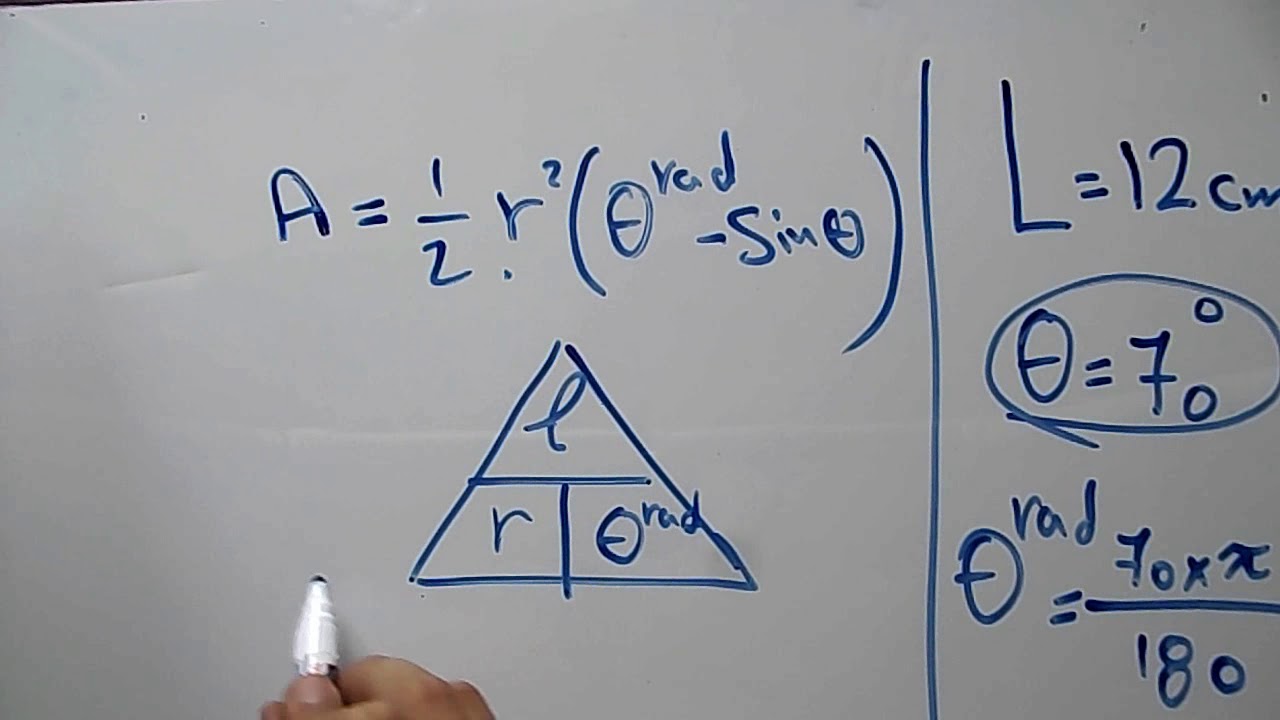 A = 1/2 . r² (θ^rad - Sin θ)
l
r θ^rad
L = 12 cm
θ = 70°
θ^rad = 70 × π / 180